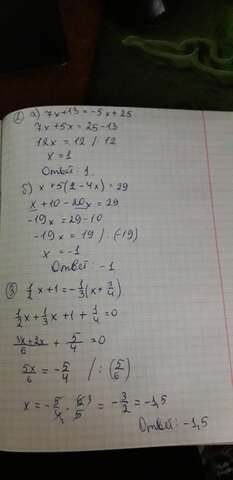 ② а) 7x+13=-5x+25
7x+5x=25-13
12x=12 /:12
x=1
Ответ: 1.
б) x+5(2-4x)=29
x+10-20x=29
-19x=29-10
-19x=19 /:(-19)
x=-1
Ответ: -1
③ 1/2 x+1=-1/3(x+3/4)
1/2 x+1/3 x+1+1/4=0
3x+2x/6 + 5/4 =0
5x/6 = -5/4 /:(5/6)
x=-5/4 · 6/5 = -3/2 =-1,5
Ответ: -1,5